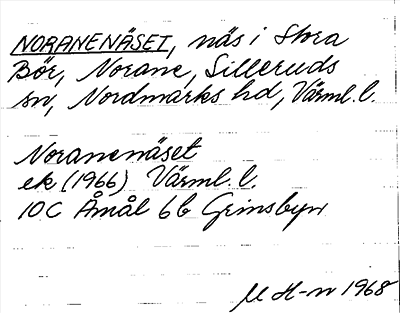 NORANENÄSET, näs i Stora
Bör, Norane, Silleruds
sn, Nordmarks hd, Värml. l.
Noranenäset
ek (1966) Värml. l.
10C Åmål 6b Grinsbyn
M H-n 1968